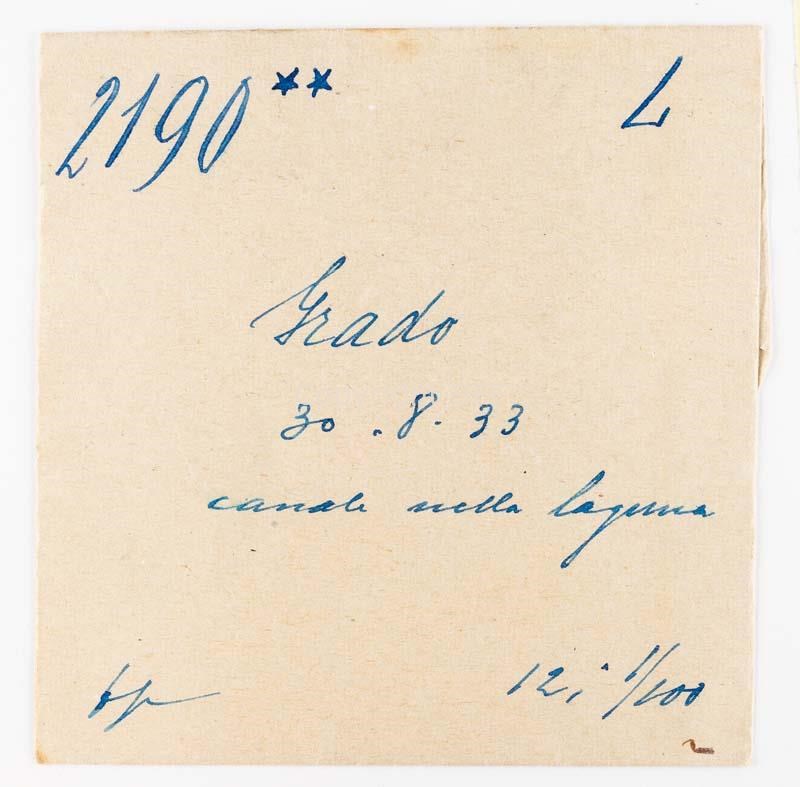 2190** L
Grado
30.8.33
canale nella laguna
12, 1/100